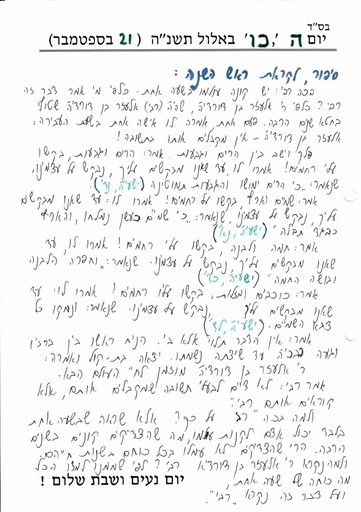 בס"ד
יום ה', כו' באלול תשנ"ה (21 בספטמבר)
סיפור, לקראת ראש השנה:
בכה רבי: יש קונה עולמו בשעה אחת. כלפי מי אמר דבר זה
רבי? כלפי ר' אלעזר בן דורדיה, שהיה שטוף
בחטא שנים הרבה. פעם אחת אמרה לו אישה אחת בשעת העבירה:
אלעזר בן דורדיה - אין מקבלים אותו בתשובה!
הלך וישב בין הרים וגבעות. אמר: הרים וגבעות, בקשו
עלי רחמים! אמרו לו, עד שאנו מבקשים עליך, נבקש על עצמינו,
שנאמר: "כי הרים ימושו והגבעות תמוטינה" (ישעיה, נד')
אמר: שמים וארץ, בקשו עלי רחמים! אמרו לו: עד שאנו מבקשים
עליך, נבקש על עצמינו, שנאמר: "כי שמים כעשן נמלחו, והארץ
כבגד תבלה" (ישעיה, נא')
אמר: חמה ולבנה, בקשו עלי רחמים! אמרו לו, עד
שאנו מבקשים עליך, נבקש על עצמינו. שנאמר: "וחפרה הלבנה
ובושה החמה" (ישעיה, כד')
אמר: כוכבים ומזלות, בקשו עלי רחמים! אמרו לו: עד
שאנו מבקשים עליך, נבקש על עצמינו. שנאמר: ונמקו כל
צבא השמים. (ישעיה, לד')
אמר: אין הדבר תלוי אלא בי. הניח ראשו בין ברכיו
וגעה בבכיה עד שיצתה נשמתו. יצאה בת-קול ואמרה:
ר' אלעזר בן דורדיה מזומן לחיי העולם הבא.
אמר רבי: לא דיים לבעלי תשובה שמקבלים אותם, אלא
קוראים אותם "רבי".
ולמה בכה רבי על כך? אלא שראה שבשעה אחת
בלבד יכול אדם לקנות עולמו, מה שהצדיקים קונים בשנים
הרבה. הרי שהצדיקים לא עמלו בכל כוחם בשנות חייהם.
ולמה נקרא ר' אלעזר בן דורדיא רבי? לפי שממנו למדו הכל
מה כוחה של שעה אחת,
ועל דבר זה נקרא "רבי".
יום נעים ושבת שלום !